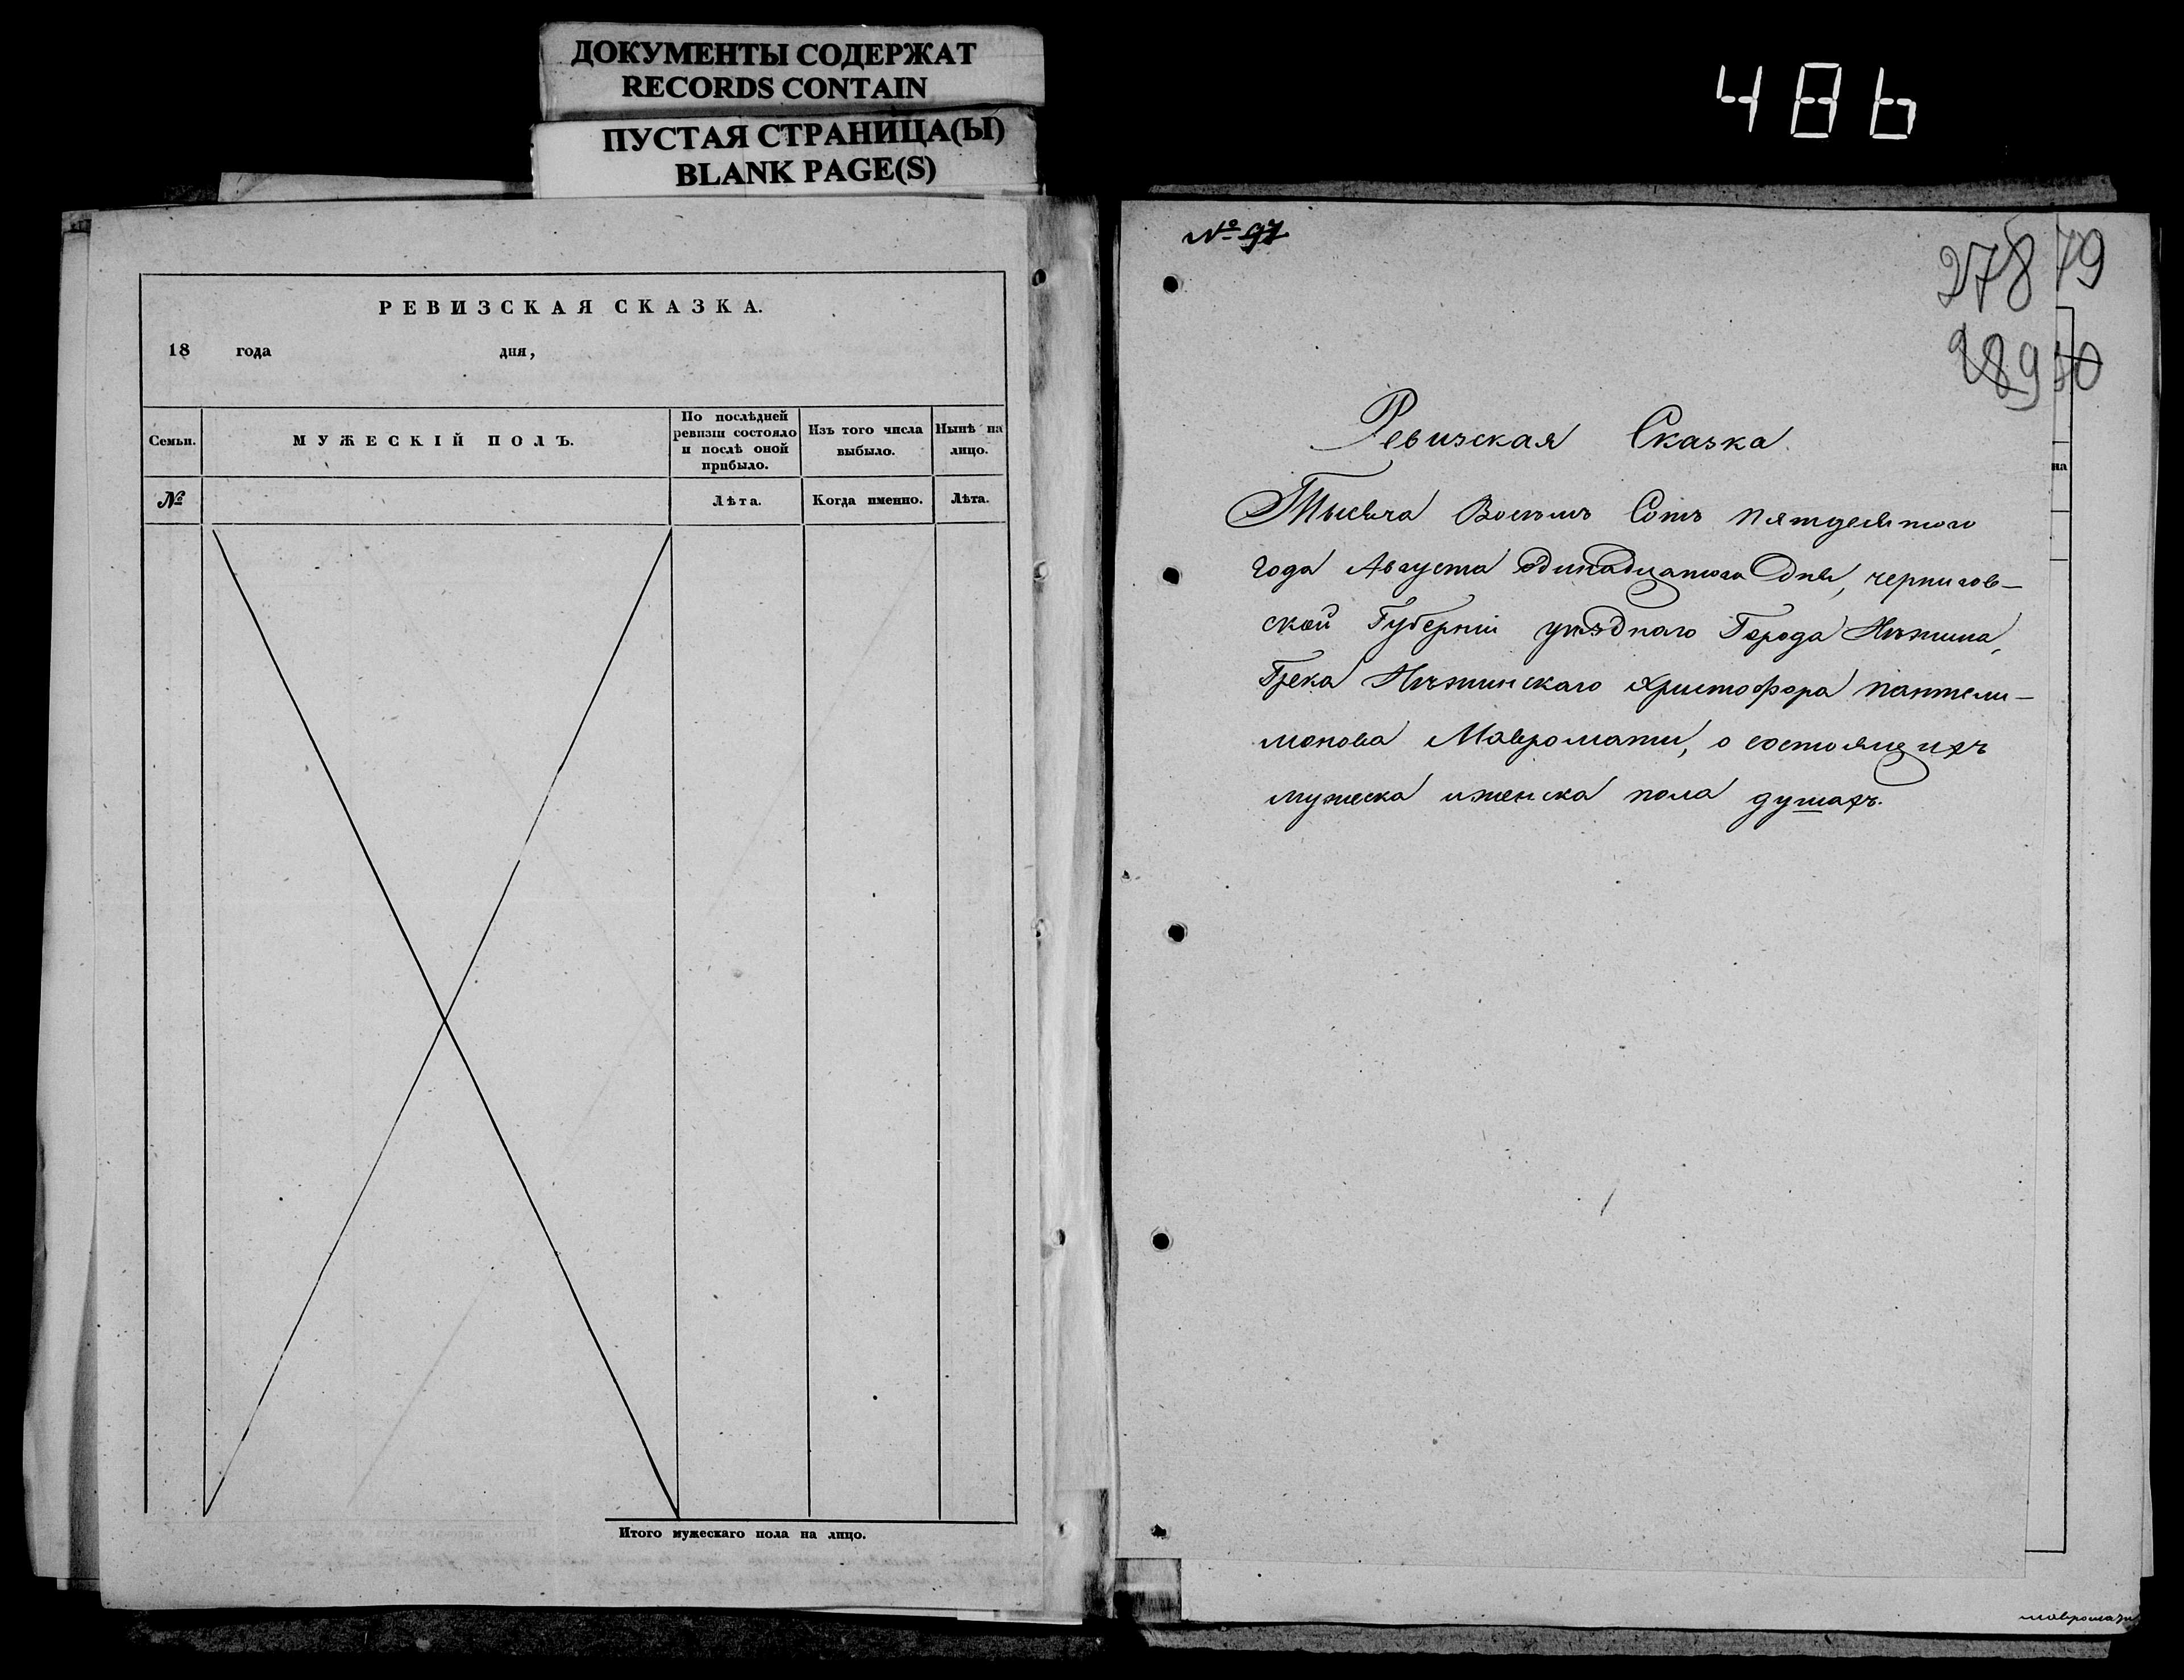 ДОКУМЕНТЫ СОДЕРЖАТ
RECORDS CONTAIN
ПУСТАЯ СТРАНИЦА(Ы)
BLANK PAGE(S)
486
РЕВИЗСКАЯ СКАЗКА.
18 года дня,
Семьи.
МУЖЕСКІЙ ПОЛЪ.
По послѣдней
ревизіи состояло
и послѣ оной
прибыло.
Изъ того числа
выбыло.
Нынѣ на
лицо.
№
Лѣта.
Когда именно.
Лѣта.
Итого мужескаго пола на лицо.
№ 97
278 79
289 80
на
Ревизская Сказка.
Тысяча Восемъ Сотъ пятдесятого
года Августа одинадцатого Дня, чернигов-
ской Губерніи уѣзднаго Города Нѣжина,
Грека Нѣжинскаго Христофора пантели-
монова Мавромати, о состоящихъ
мужеска и женска пола душахъ.